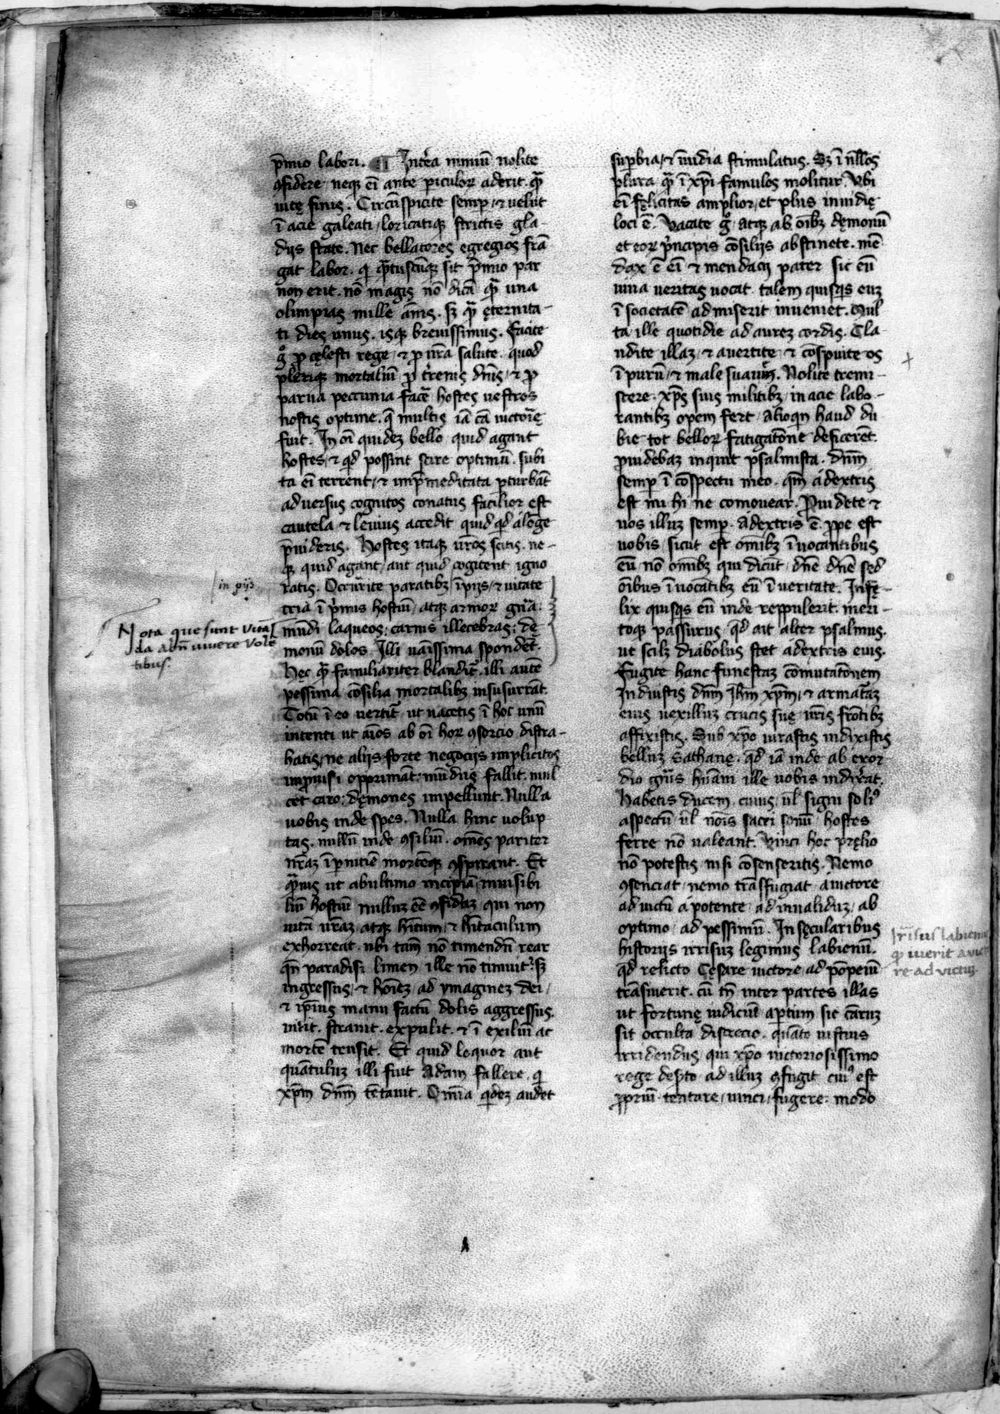 p̄mio labori. ¶ Int̄ea nimiū nolite
ꝯfidere neqꝫ ei ante piculoꝝ aderit qͣꝫ
vite finis. Circūspicite semp, ⁊ velut
ī acie galeati, loricatiqꝫ strictis gla-
dijs state. Nec bellatores egregios frā
gat labor. qͥ qͣꝫtuscūqꝫ sit p̄mio par
non erit. nō magis nō dicā qͣꝫ una
olimpias mille ānis. sꝫ qͣꝫ ęternita-
ti dies unus. isqꝫ brevissimus. Facite
gͦ ꝓ cęlesti rege, ⁊ ꝓ nr̄a salute. quod
pleriqꝫ mortaliū ꝓ tr̄enis dn̄is, ⁊ ꝓ
parva pecunia facē. hostes vestros
nostis optime. qͣ multis iā cā victorię
fuit. In oī quidez bello quid agant
hostes, ⁊ qd possint scire optimū. subi
ta eī terrent, ⁊ imp̄meditata pturbāt
adversus cognitos conatus facilior est
cautela ⁊ levius accedit quid qd a lōge
p̄videris. Hostes itaqꝫ vr̄os scitis. ne-
qꝫ quid agant, aut quid cogitent igno
ratis. Occurrite paratibꝫ īpijs, ⁊ vitate
tria ī p̄mis hostiū, atqꝫ armoꝝ gn̄a.
mūdi laqueos, carnis illecebras, de
monū dolos. Illi vaīssima spondēt.
Hec qͣꝫ familiariter blandit̄. illi autē
pessima cōsilia mortalibꝫ insusurrāt.
Totū ī eo vertit̄, ut vacetis ī hoc unū
intenti ut aīos ab oī hoꝝ ꝯsorcio distra-
hatis, ne aliis forte negocijs implicitos
improvisi opprimāt. mūdus fallit. mul
cet caro; dęmones impellunt. Nulla
vobis inde spes. Nulla hinc volup
tas. nullū inde ꝯsiliū. omēs pariter
vr̄aꝫ ī pnitiē mortēqꝫ ꝯspirant. Et
p̄mis ut ab ultimo incipiā, invisibi
liū hostiū nulluꝫ eē ꝯfidaꝫ qui non
vitā vr̄aꝫ atqꝫ hītum, ⁊ hītaculum
exhorreat. ubi tam̄ nō timendū rear
qn̄ paradisi limen ille nō timuit. sꝫ
ingressus, ⁊ hoīeꝫ ad ymaginez dei,
⁊ ip̄ius manu factū dolis aggressus.
vicit. stravit. expulit. ⁊ ī exiliū ac
mortē trusit. Et quid loquor aut
quātuluꝫ illi fuit Adam fallere. qͥ
xp̄m dn̄m tētavit. Omīa qͥdeꝫ audet
suꝑbia, ⁊ īvidia stimulatus. Sꝫ ī nll̄os
plura qͣꝫ ī xp̄i famulos molitur. Ubi
eī fęlicitas amplior, et plus invidię
loci ē. Vacate gͦ atqꝫ ab oībꝫ dęmonū
et eoꝝ pͥncipis cōsiliis abstinete. mē
dax ē eī ⁊ mendacij pater sic eū
viva veritas vocat. talem quisqͥs euꝫ
ī societatē admiserit inveniet. Mul
ta ille quotidie ad aures cordis. Cla
udite illas, ⁊ avertite, ⁊ cōspuite os
īpurū, ⁊ male suavū. Nolite tremi-
scere. xp̄s suis militibꝫ in acie labo-
rantibꝫ opem fert. Alioqͥn haud du
bie tot belloꝝ fatigatōne deficerēt.
Providebaꝫ inquit psalmista. dn̄m
semp ī cōspectu meo. qm̄ a dextris
est mi hi ne comovear. Providete ⁊
vos illuꝫ semp. adextris ē. ꝓpe est
vobis, sicut est omībꝫ īvocantibus
eū nō omībꝫ qui dicūt, dn̄e dn̄e sed
oībus īvocātibꝫ eū ī veritate. Infę-
lix quisqͥs eū inde reppulerit. meri-
toqꝫ passurus qd ait alter psalmus.
ut scilꝫ diabolus stet adextris eius.
Fugite hanc funestaꝫ comutatōnem
Induistis dn̄m ihm̄ xp̄m, ⁊ armataꝫ
eius vexilluꝫ crucis suę, vr̄is frōtibꝫ
affixistis. Sub xp̄o iurastis indixistis
belluꝫ Sathanę. qd iā inde ab exor
dio gn̄is hūani ille vobis indixerat.
Habetis ducem, cuius, vl̄ signi soliꝰ
aspectū vl̄ nōis sacri sonū hostes
ferre nō valeant. Vinci hoc prelio
nō potestis nisi cōsenseritis. Nemo
ꝯsenciat, nemo trāsfugiat, a victore
ad victū a potente, ad invaliduꝫ, ab
optimo, ad pessimū. In sęcularibus
historijs irrisuꝫ legimus labienū.
qd relicto Cesare victore ad pōpeiū
trāsiverit. cū tn̄ inter partes illas
ut fortunę iudiciū apertum sic caruꝫ
sit occulta discrecio. quāto iustius
irridendus, qui xp̄o victoriosissimo
rege despto ad illuꝫ ꝯfugit cuiꝰ est
ꝓpriū tentare, vinci, fugere, modo
in pijs
Nota que sunt vitā
da a bn̄ vivere volē
tibus.
Irrisus labienus
qͥ iverit a victo
re ad victuꝫ